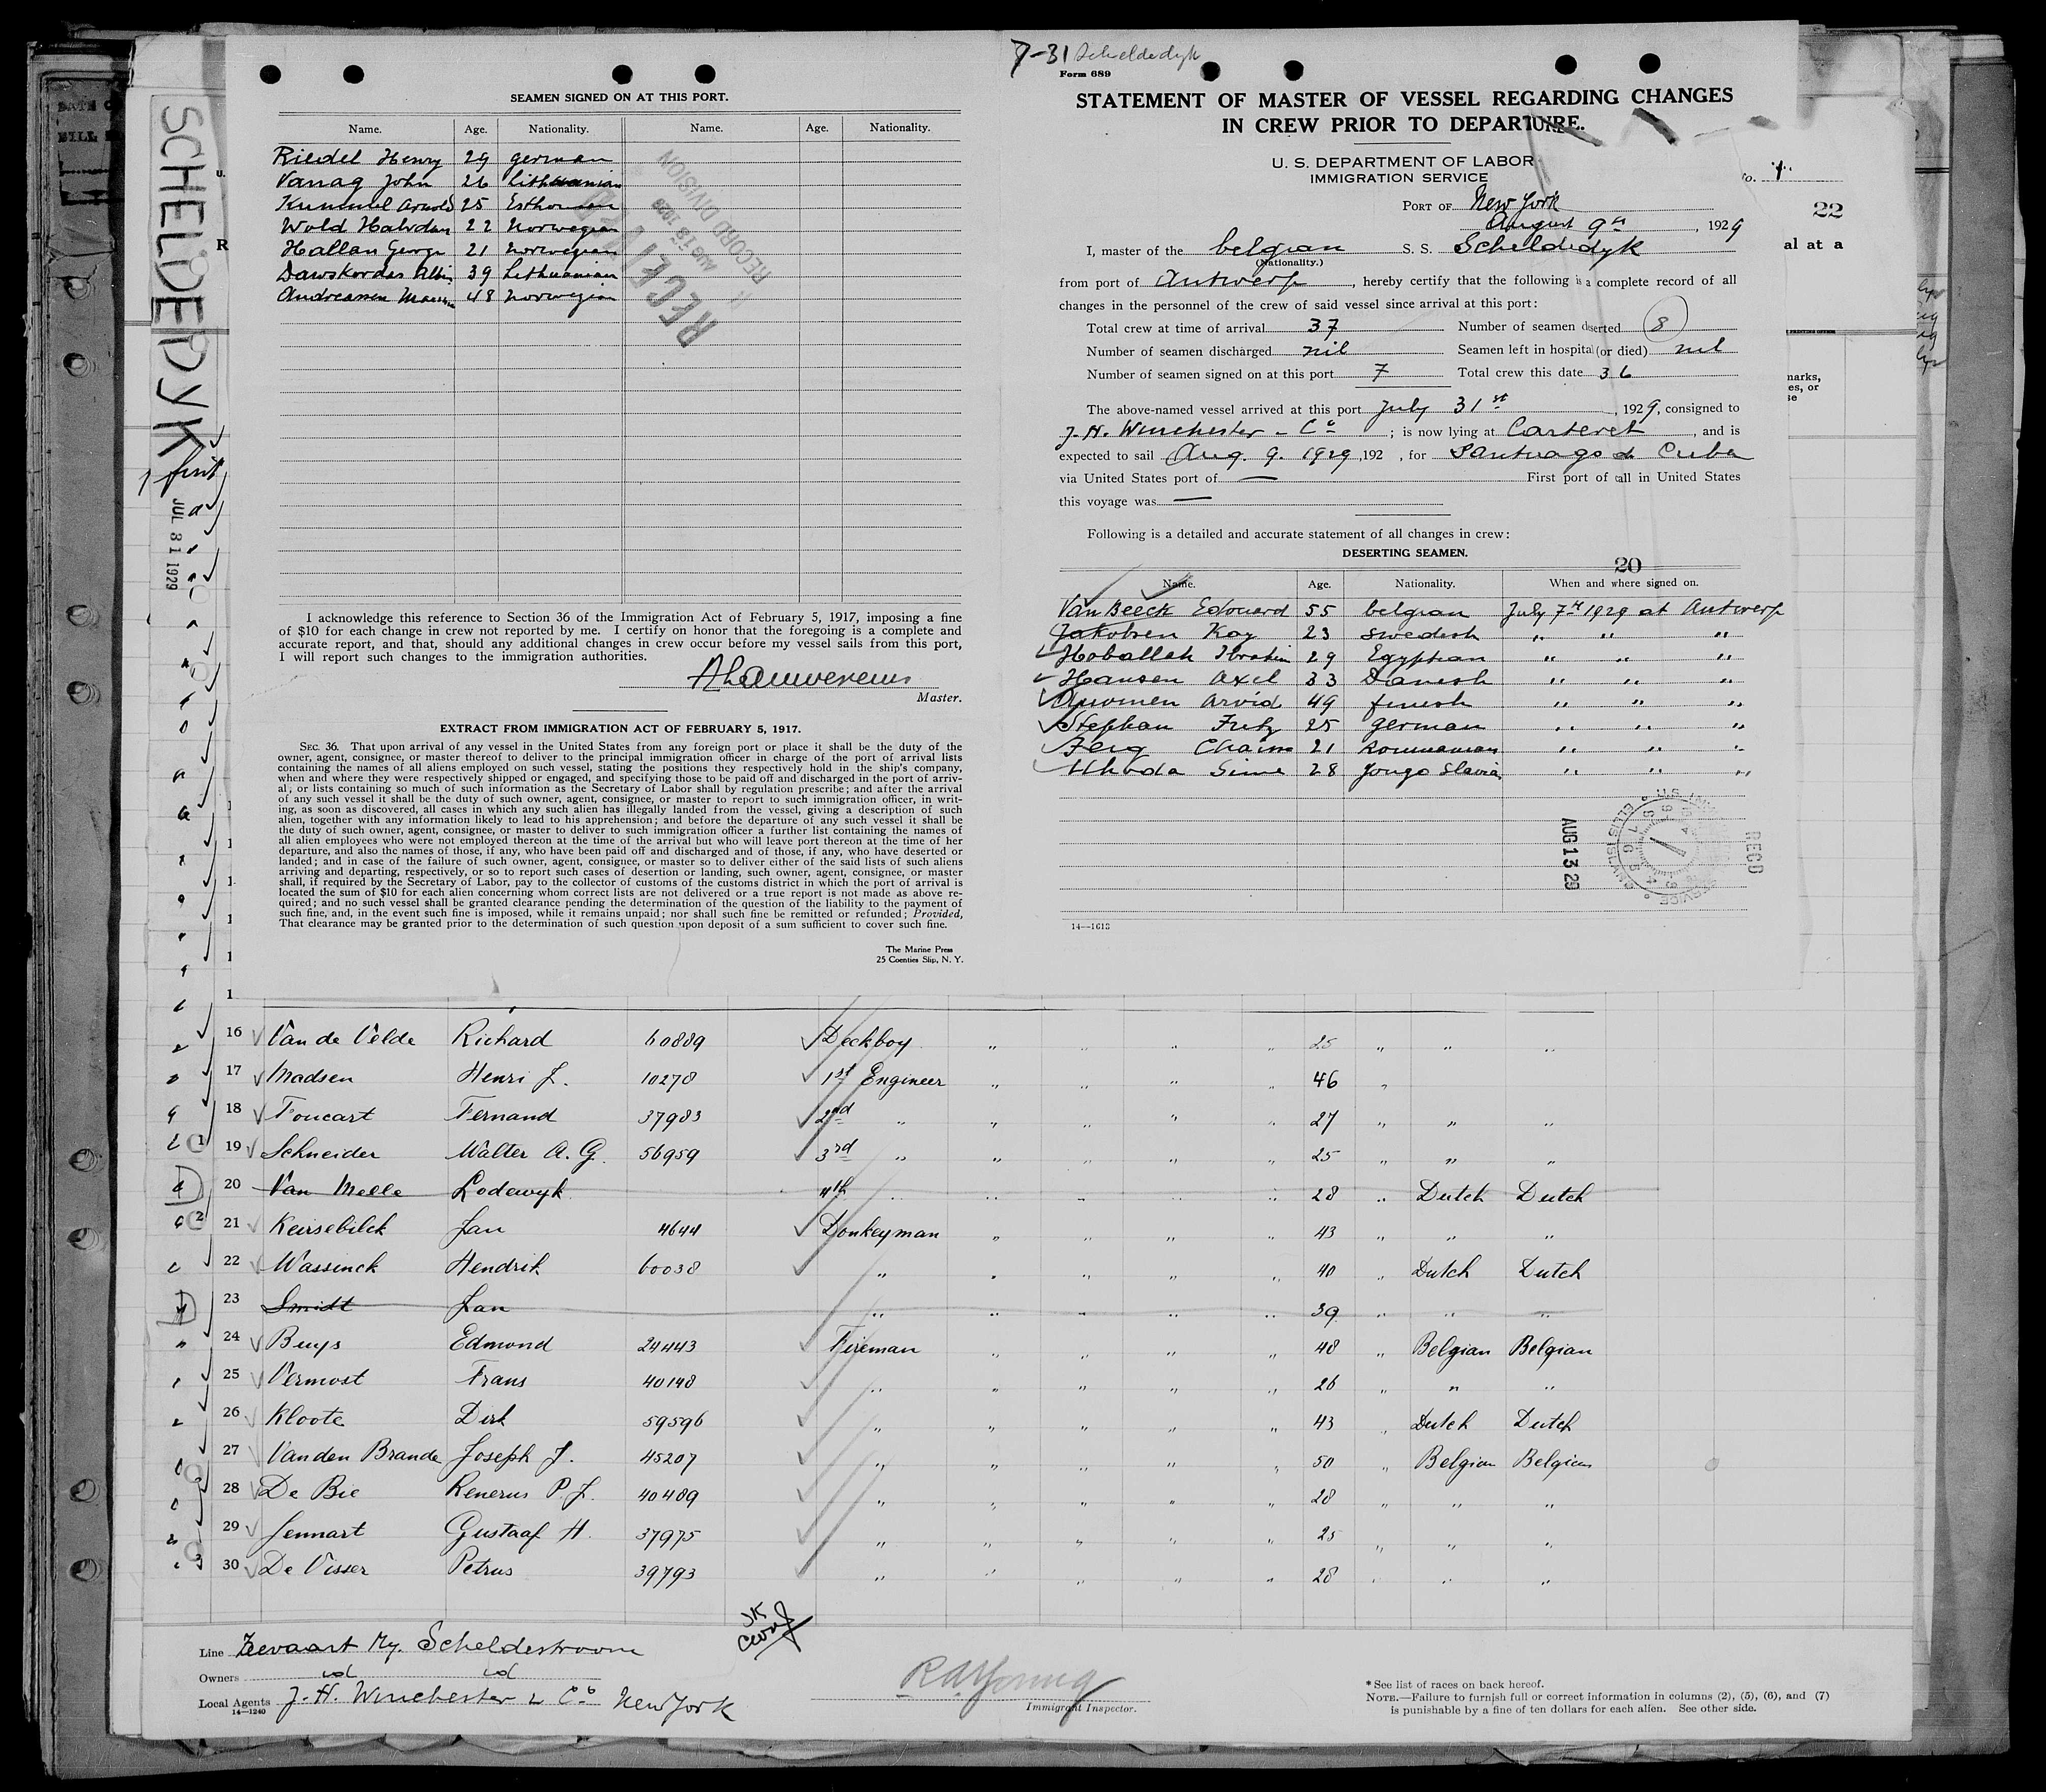 7-31 Scheldedyk
Form 689
SEAMEN SIGNED ON AT THIS PORT.
Name. Age. Nationality. Name. Age. Nationality.
Riedel Henry 29 german
Vanag John 26 Lithuanian
Kummel Arnold 25 Esthonian
Wold Halvdan 22 norwegian
Hallan George 21 norwegian
Dawskordas Albin 39 Lithuanian
Andreassen 48 norwegian
RECEIVED
AUG 13 1929
RECORD DIVISION
I acknowledge this reference to Section 36 of the Immigration Act of February 5, 1917, imposing a fine
of $10 for each change in crew not reported by me. I certify on honor that the foregoing is a complete and
accurate report, and that, should any additional changes in crew occur before my vessel sails from this port,
I will report such changes to the immigration authorities.
Master.
EXTRACT FROM IMMIGRATION ACT OF FEBRUARY 5, 1917.
SEC. 36. That upon arrival of any vessel in the United States from any foreign port or place it shall be the duty of the
owner, agent, consignee, or master thereof to deliver to the principal immigration officer in charge of the port of arrival lists
containing the names of all aliens employed on such vessel, stating the positions they respectively hold in the ship's company,
when and where they were respectively shipped or engaged, and specifying those to be paid off and discharged in the port of arriv-
al; or lists containing so much of such information as the Secretary of Labor shall by regulation prescribe; and after the arrival
of any such vessel it shall be the duty of such owner, agent, consignee, or master to report to such immigration officer, in writ-
ing, as soon as discovered, all cases in which any such alien has illegally landed from the vessel, giving a description of such
alien, together with any information likely to lead to his apprehension; and before the departure of any such vessel it shall be
the duty of such owner, agent, consignee, or master to deliver to such immigration officer a further list containing the names of
all alien employees who were not employed thereon at the time of the arrival but who will leave port thereon at the time of her
departure, and also the names of those, if any, who have been paid off and discharged and of those, if any, who have deserted or
landed; and in case of the failure of such owner, agent, consignee, or master so to deliver either of the said lists of such aliens
arriving and departing, respectively, or so to report such cases of desertion or landing, such owner, agent, consignee, or master
shall, if required by the Secretary of Labor, pay to the collector of customs of the customs district in which the port of arrival is
located the sum of $10 for each alien concerning whom correct lists are not delivered or a true report is not made as above re-
quired; and no such vessel shall be granted clearance pending the determination of the question of the liability to the payment of
such fine, and, in the event such fine is imposed, while it remains unpaid; nor shall such fine be remitted or refunded; Provided,
That clearance may be granted prior to the determination of such question upon deposit of a sum sufficient to cover such fine.
The Marine Press
25 Coenties Slip, N. Y.
STATEMENT OF MASTER OF VESSEL REGARDING CHANGES
IN CREW PRIOR TO DEPARTURE.
U. S. DEPARTMENT OF LABOR
IMMIGRATION SERVICE
PORT OF New York
August 9th, 1929
I, master of the belgian S. S. Scheldedyk
(Nationality.)
from port of Antwerp, hereby certify that the following is a complete record of all
changes in the personnel of the crew of said vessel since arrival at this port:
Total crew at time of arrival 37 Number of seamen deserted 8
Number of seamen discharged nil Seamen left in hospital (or died) nil
Number of seamen signed on at this port 7 Total crew this date 36
The above-named vessel arrived at this port July 31st, 1929, consigned to
J. H. Winchester - Co; is now lying at Carteret, and is
expected to sail Aug. 9. 1929, 192 , for Santiago de Cuba
via United States port of — First port of call in United States
this voyage was —
Following is a detailed and accurate statement of all changes in crew:
DESERTING SEAMEN.
20
Name. Age. Nationality. When and where signed on.
Van Beeck Edouard 55 belgian July 7th 1929 at Antwerp
Jakobsen Kay 23 swedish " " "
Hoballah Ibrahim 29 Egyptian " " "
Hansen Axel 33 Danish " " "
Arvid 49 finish " " "
Stephan Fritz 25 german " " "
Chaim 21 Roumanian " " "
Sime 28 Jougo Slavia " " "
AUG 13 29
RECD
14—1613
22
al at a
SCHELDEDYK
first
JUL 31 1929
16 Van de Velde Richard 60889 Deckboy " " " " 25 " " "
17 Madsen Henri J. 10278 1st Engineer " " " " 46 "
18 Foucart Fernand 37983 2nd " " " " " 27 " " "
19 Schneider Walter A. G. 56959 3rd " " " " " 25 " " "
20 Van Melle Lodewyk 4th " " " " " 28 " Dutch Dutch
21 Keirsebilck Jan 4644 Donkeyman " " " " 43 " " "
22 Wassinck Hendrik 60038 " " " " " 40 " Dutch Dutch
23 Smidt Jan " " " " " 39 " " "
24 Buys Edmond 24443 Fireman " " " " 48 " Belgian Belgian
25 Vermost Frans 40148 " " " " " 26 " " "
26 Kloote Dirk 59596 " " " " " 43 " Dutch Dutch
27 Vanden Brande Joseph J. 45207 " " " " " 50 " Belgian Belgian
28 De Bie Renerus P. J. 40489 " " " " " 28 " " "
29 Jennart Gustaaf H. 37975 " " " " " 25 " " "
30 De Visser Petrus 39793 " " " " " 28 " " "
Line Zeevaart My. Scheldestroom
Owners id id
Local Agents J. H. Winchester & Co New York
14—1240
Immigrant Inspector.
* See list of races on back hereof.
NOTE.—Failure to furnish full or correct information in columns (2), (5), (6), and (7)
is punishable by a fine of ten dollars for each alien. See other side.